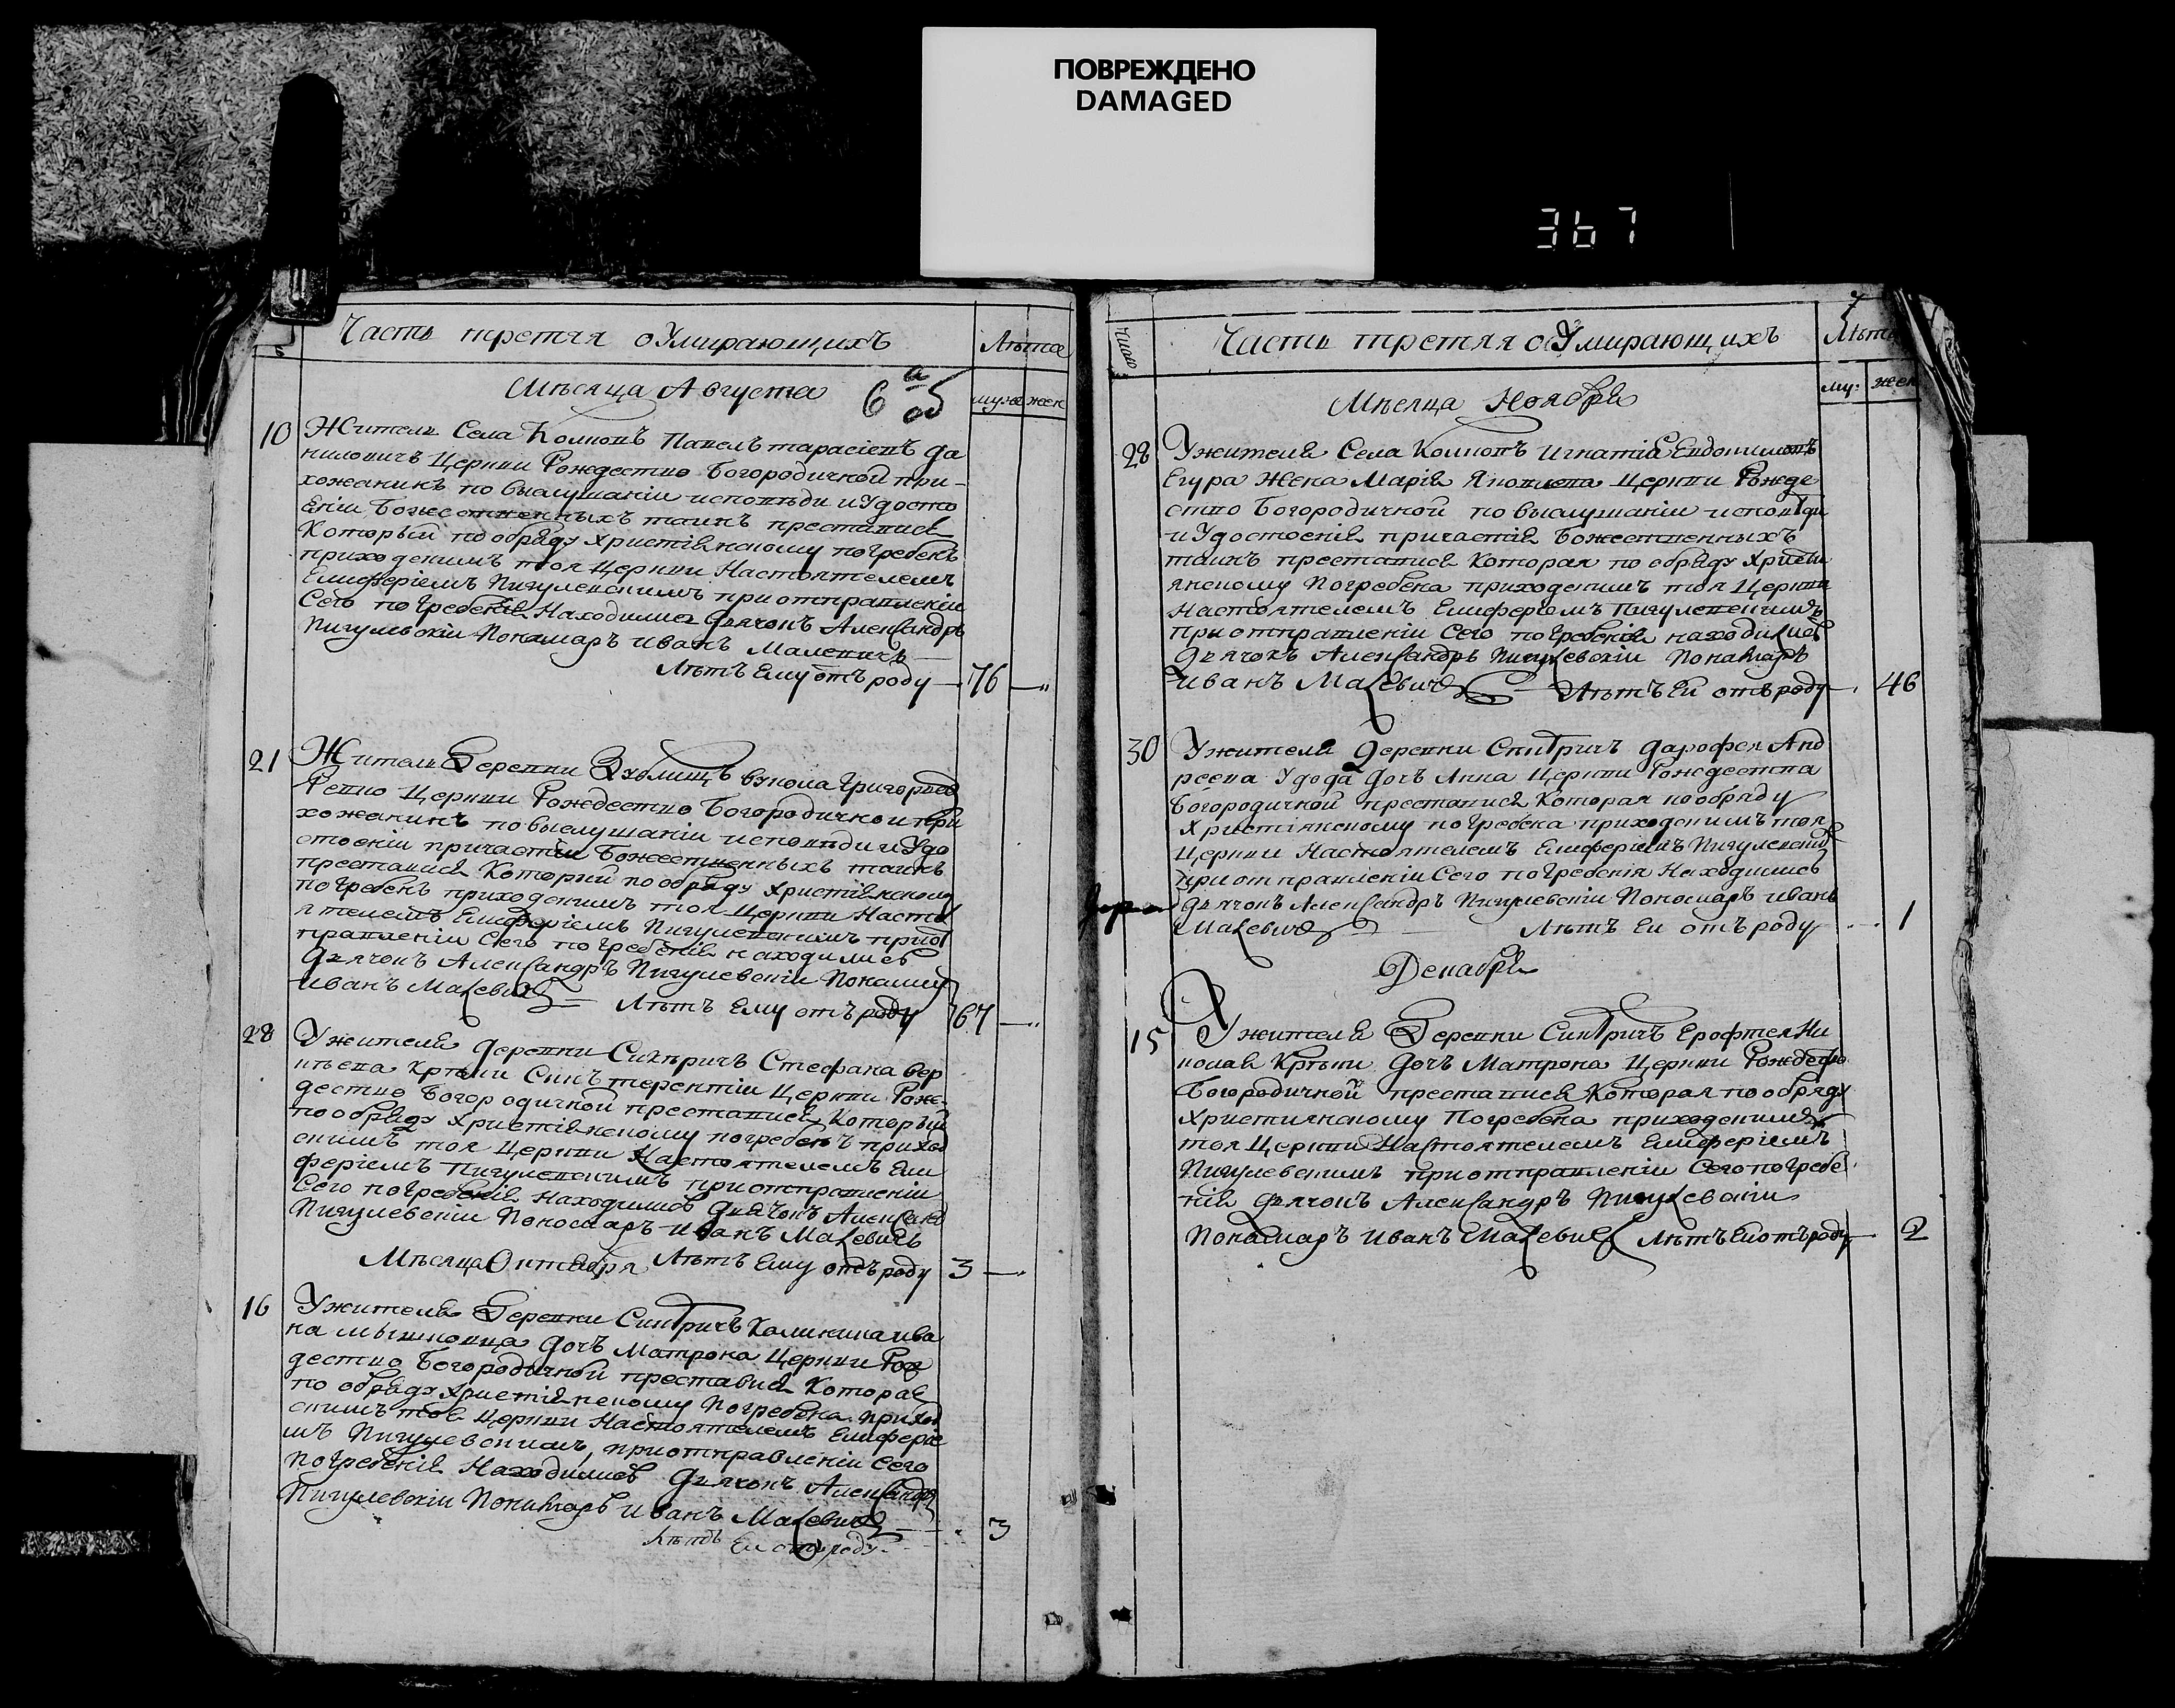 ПОВРЕЖДЕНО
DAMAGED
367
Часть третяя о Умирающихъ
Лѣта
Мѣсяца Августа
6 а об
муж жен
10 Житель Села Колковъ Павелъ Тарасіевъ Да
ниловичъ Церкви Рождество Богородичной при-
хожанинъ по выслушаніи исповѣди и Удосто
еніи Божественныхъ таинъ преставися
Который по обряду христіянскому погребенъ
приходскимъ тоя Церкви Настоятелемъ
Елиферіемъ Пигулевскимъ при отправленіи
Сего погребенія Находились Дьячокъ Александръ
Пигулевскіи Пономаръ Иванъ Малевичъ
Лѣтъ Ему отъ роду 76
21 Житель Деревни Григорьев
Церкви Рождество Богородичной при
хожанинъ по выслушаніи исповѣди и Удо
стоеніи причастія Божественныхъ таинъ
преставися Который по обряду христіянскому
погребенъ приходскимъ тоя Церкви Насто
ятелемъ Елиферіемъ Пигулевскимъ при от
правленіи Сего погребенія находились
Дьячокъ Александръ Пигулевскіи Пономар
Иванъ Малевичъ Лѣтъ Ему отъ роду 67
28 Ужителя Деревни Стефана
Сынъ терентіи Церкви Рож-
дество Богородичной преставися Который
по обряду христіянскому погребенъ приход
скимъ тоя Церкви Настоятелемъ Ели
феріемъ Пигулевскимъ при отправленіи
Сего погребенія Находились Дьячокъ Александ
Пигулевскіи Пономаръ Иванъ Малевичъ
Мѣсяца Октября Лѣтъ Ему отъ роду 3
16 Ужителя Деревни Калиника Ива
на дочъ Матрона Церкви Рож
дество Богородичной преставися Которая
по обряду христіянскому Погребена приход
скимъ тоя Церкви Настоятелемъ Елиферіе
мъ Пигулевскимъ, при отправленіи Сего
погребенія Находились Дьячокъ Александръ
Пигулевскіи Пономаръ Иванъ Малевичъ
Лѣтъ Ей отъ роду 3
7
Число
Часть третяя о Умирающихъ
Лѣта
му: жен
Мѣсяца Ноября
28 Ужителя Села Колковъ Игнатія Евдокимовъ
Егура Жена Марія Церкви Рожде
ство Богородичной по выслушаніи исповѣди
и Удостоенія причастія Божественныхъ
таинъ преставися Которая по обряду христи
янскому Погребена приходскимъ тоя Церкви
Настоятелемъ Елиферіемъ Пигулевскимъ
При отправленіи Сего погребенія находились
Дьячокъ Александръ Пигулевскіи Понамаръ
Иванъ Малевичъ Лѣтъ Ей отъ роду 46
30 Ужителя Деревни Дарофея Анд
реева Удода Дочъ Анна Церкви Рождества
Богородичной преставися Которая по обряду
Христіянскому погребена приходскимъ тоя
Церкви Настоятелемъ Елиферіемъ Пигулевским
При отправленіи Сего погребенія Находились
Дьячокъ Александръ Пигулевскіи Пономаръ Иванъ
Малевичъ Лѣтъ Ей отъ роду 1
Декабря
15 Ужителя Деревни Ерофтея Ни
Дочъ Матрона Церкви Рождество
Богородичной преставися Которая по обряду
Християнскому Погребена приходскимъ
тоя Церкви Настоятелемъ Елиферіемъ
Пигулевскимъ при отправленіи Сего погребе
нія Дьячокъ Александръ Пигулевскіи
Понамаръ Иванъ Малевичъ Лѣтъ Ей отъ роду 2